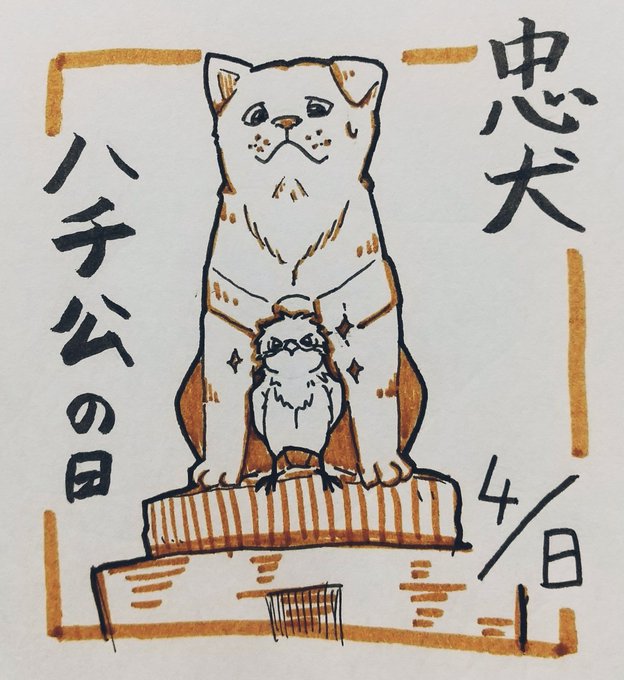 忠犬
ハチ公の日
4/日